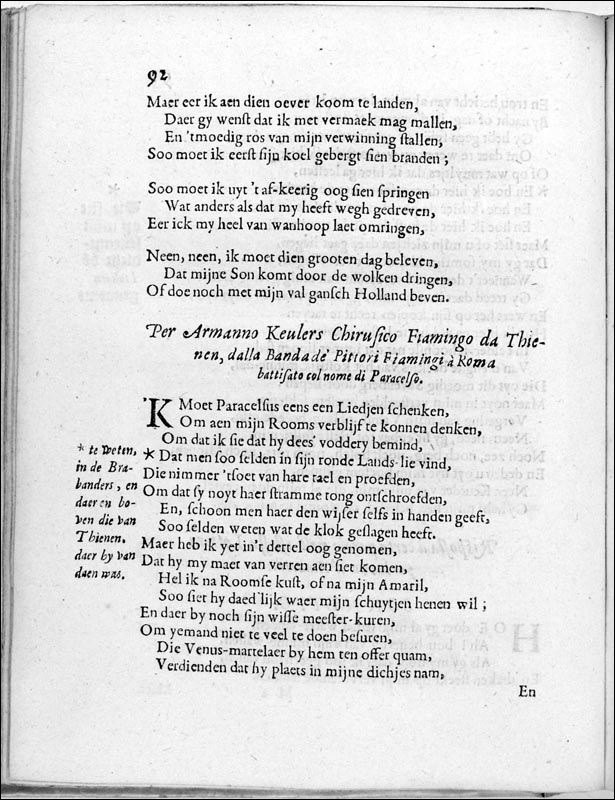 92
Maer eer ik aen dien oever koom te landen,
Daer gy wenst dat ik met vermaek mag mallen,
En 'tmoedig ros van mijn verwinning stallen,
Soo moet ik eerst sijn koel gebergt sien branden;
Soo moet ik uyt 't af-keerig oog sien springen
Wat anders als dat my heeft wegh gedreven,
Eer ick my heel van wanhoop laet omringen,
Neen, neen, ik moet dien grooten dag beleven,
Dat mijne Son komt door de wolken dringen,
Of doe noch met mijn val gansch Holland beven.
Per Armanno Keulers Chirusico Fiamingo da Thie-
nen, dalla Banda de' Pittori Fiamingi à Roma
battisato col nome di Paracelso.
'K Moet Paracelsus eens een Liedjen schenken,
Om aen mijn Rooms verblijf te konnen denken,
Om dat ik sie dat hy dees' voddery bemind,
* Dat men soo selden in sijn ronde Lands-lie vind,
Die nimmer 'tsoet van hare tael en proefden,
Om dat sy noyt haer stramme tong ontschroefden,
En, schoon men haer den wijser selfs in handen geeft,
Soo selden weten wat de klok geslagen heeft.
Maer heb ik yet in't dertel oog genomen,
Dat hy my maet van verren aen siet komen,
Hel ik na Roomse kust, of na mijn Amaril,
Soo siet hy daed'lijk waer mijn schuytjen henen wil;
En daer by noch sijn wisse meester-kuren,
Om yemand niet te veel te doen besuren,
Die Venus-martelaer by hem ten offer quam,
Verdienden dat hy plaets in mijne dichjes nam,
En
* te weten,
in de Bra-
banders, en
daer en bo-
ven die van
Thienen.
daer hy van
daen was.